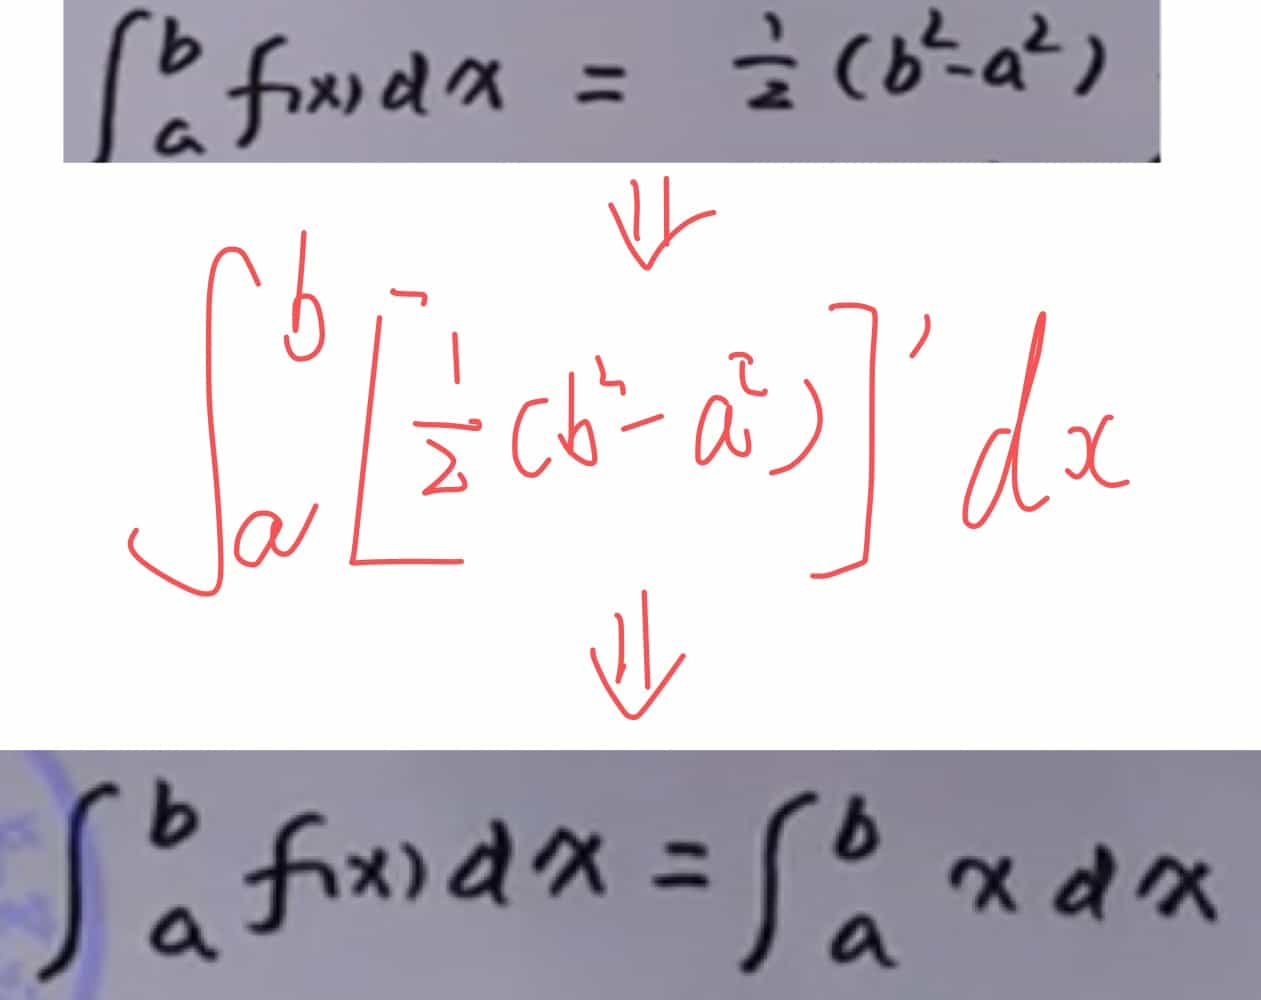 ∫ₐᵇ f(x)dx = 1/2 (b²-a²)
⇓
∫ₐᵇ [1/2 (b²-a²)]' dx
⇓
∫ₐᵇ f(x)dx = ∫ₐᵇ x dx